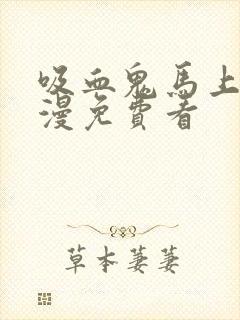 吸血鬼馬上
漫免費看
草本萋萋